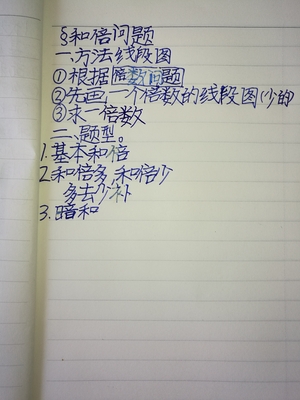 §和倍问题
一.方法线段图
①根据倍数问题
②先画一个倍数的线段图(少的
③求一倍数
二、题型。
1.基本和倍
2.和倍多,和倍少
多去少补
3.暗和